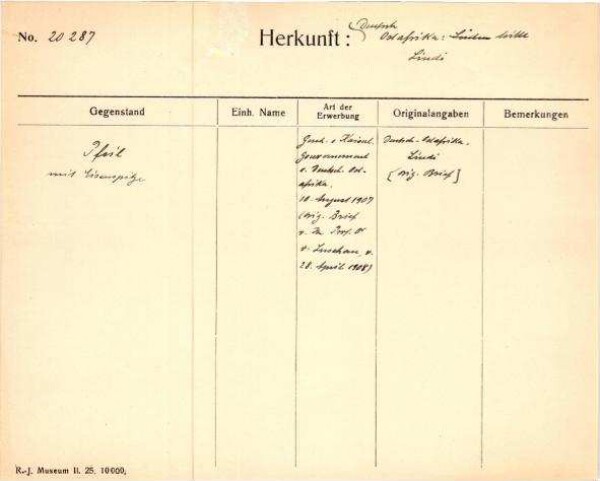 No. 20 287
Herkunft: Deutsch
Ostafrika:
Lindi
Gegenstand
Einh. Name
Art der
Erwerbung
Originalangaben
Bemerkungen
Pfeil
mit Eisenspitze
Gesch. v. Kaiserl.
Gouvernement
v. Deutsch-Ost-
afrika,
10. August 1907
(orig. Brief
v. Prof. Dr
v. Luschan, v.
28. April 1908)
Deutsch-Ostafrika,
Lindi
[orig. Brief]
R.-J. Museum II. 25. 10000.